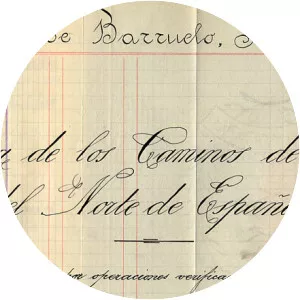 de Barruelo,
de los Caminos de
del Norte de España
por operaciones verifica